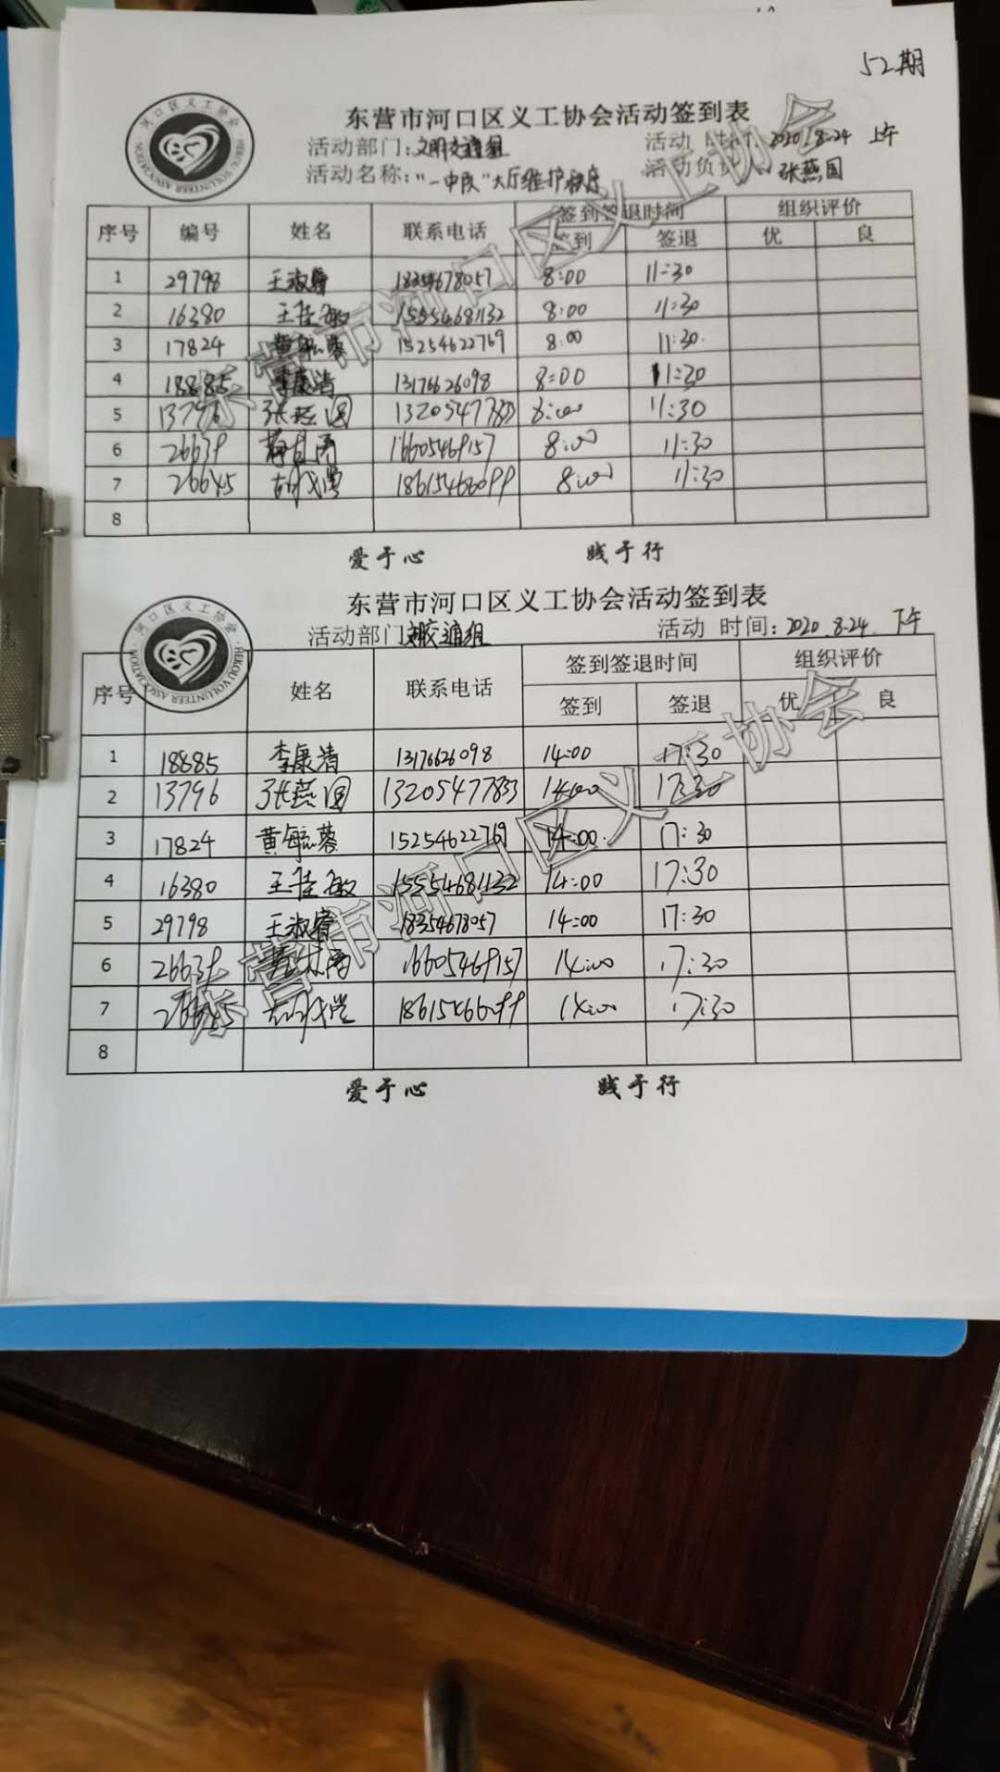 52期
东营市河口区义工协会活动签到表
活动部门:文明交通组 活动 时间: 2020.8.24 上午
活动名称:"一中队"大厅维护秩序 活动负责 张燕国
序号 编号 姓名 联系电话 签到签退时间 组织评价
签到 签退 优 良
1 29798 王淑睿 18354678057 8:00 11:30
2 16380 王佳敏 15554681132 8:00 11:30
3 17824 黄毓蓉 15254622769 8:00 11:30
4 18885 李康清 13176626098 8:00 11:30
5 13796 张燕国 13205477833 8:00 11:30
6 26639 16605469157 8:00 11:30
7 26645 18615466099 8:00 11:30
8
爱于心 践于行
东营市河口区义工协会活动签到表
活动部门 文明交通组 活动 时间: 2020.8.24. 下午
序号 姓名 联系电话 签到签退时间 组织评价
签到 签退 优 良
1 18885 李康清 13176626098 14:00 17:30
2 13796 张燕国 13205477833 14:00 17:30
3 17824 黄毓蓉 15254622769 14:00 17:30
4 16380 王佳敏 15554681132 14:00 17:30
5 29798 王淑睿 18354678057 14:00 17:30
6 26639 16605469157 14:00 17:30
7 26645 18615466099 14:00 17:30
8
爱于心 践于行
河口区义工协会
HEKOU VOLUNTEER ASSOCIATION
东营市河口区义工协会